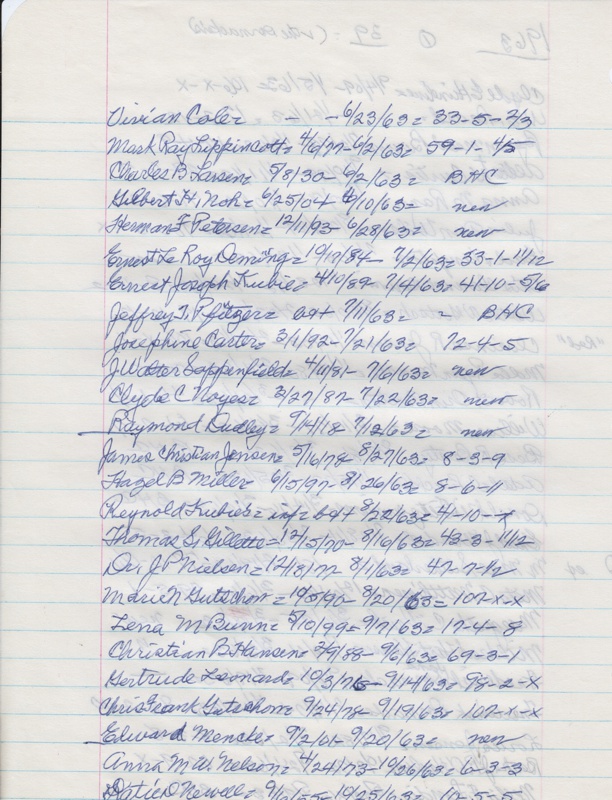 Vivian Coler - - 6/23/63 = 33-5-2/3
Mark Ray Lippincott = 4/6/77-6/2/63 = 59-1-4/5
Charles B Larsen = 5/8/30 - 6/2/63 = BHC
Gilbert H. Noh = 6/25/04 6/10/63 = new
Herman F Petersen = 12/11/93 - 6/28/63 = new
Ernest Le Roy Deming = 10/17/84 - 7/2/63 = 33-1-11/12
Ernest Joseph Kubie = 4/10/89 7/4/63 = 41-10-5/6
Jeffrey T. Pfitzer = b+ 7/11/63 = = BHC
Josephine Carter = 3/1/92 - 7/21/63 = 72-4-5
J Walter Seppenfield = 4/11/81 - 7/6/63 = new
Clyde C Noyes = 2/27/87 - 7/22/63 = new
Raymond Dudley = 9/14/18 7/12/63 = new
James Christian Jensen = 5/16/78 8/27/63 = 8-3-9
Hazel B Miller = 6/15/97 - 8/26/63 = 8-6-11
Reynold Kubie = inf = b+ 8/22/63 = 41-10-x
Thomas S. Gillette = 12/15/70 - 8/16/63 = 43-3-11/12
Dr. J P Nielsen = 12/8/77 - 8/1/63 = 47-7-1/2
Marie N Gutschow = 10/5/90 - 8/20/63 = 107-x-x
Lena M Bunn = 5/10/99 = 9/7/63 = 17-4-8
Christian B Hansen = 2/9/88 - 9/6/63 = 69-3-1
Gertrude Leonard = 10/3/76 - 9/14/63 = 98-2-x
Chris Frank Gutschow = 9/24/78 - 9/19/63 = 107-x-x
Edward Mencke = 9/2/01 - 9/20/63 = new
Anna M W. Nelson = 4/24/73 - 10/26/63 = 6-3-3
Newell = 10/25/63 = 10-5-5